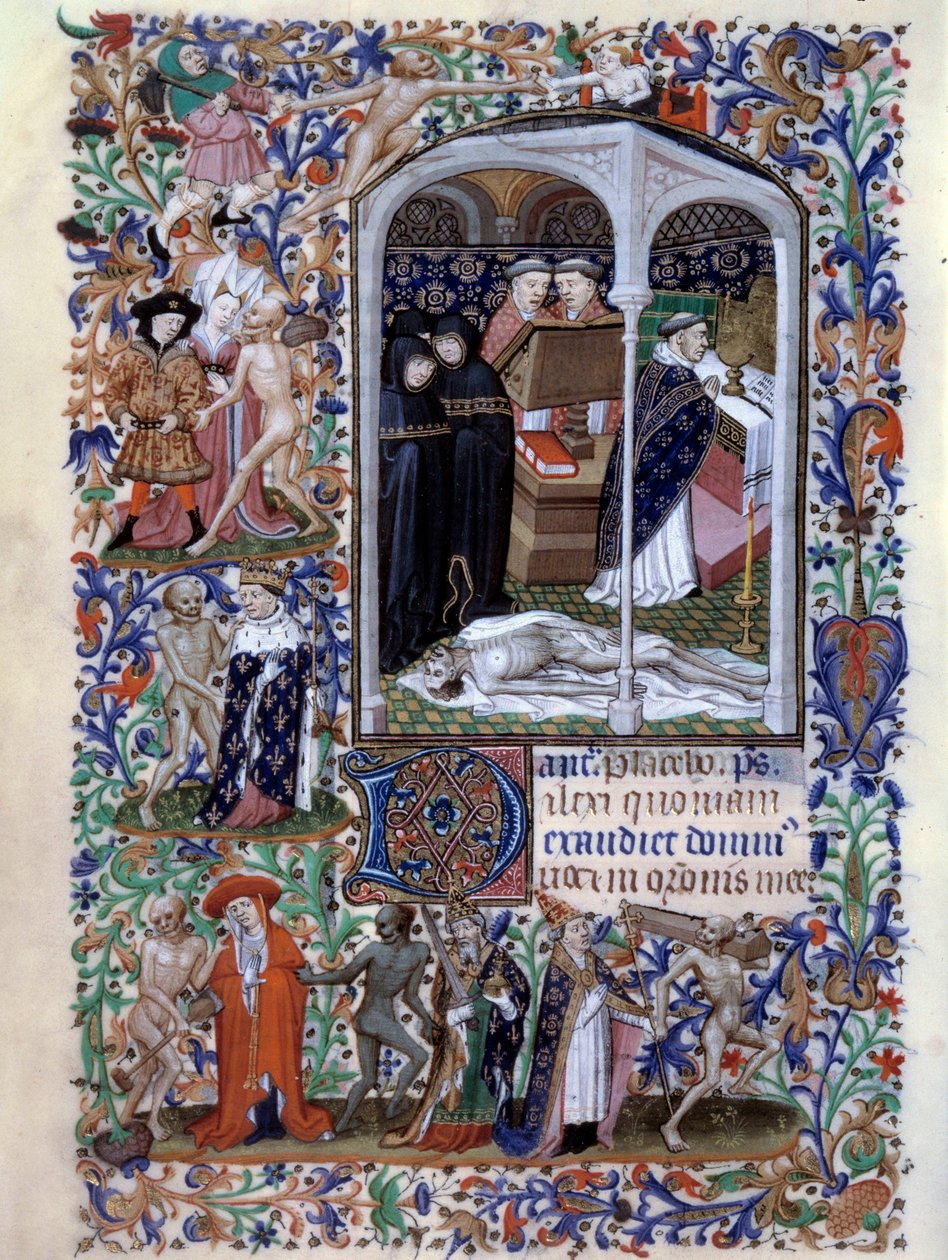 anť. Placebo. ps.
Dilexi quoniam
exaudiet domin⁹
uocem or̃onis mee: